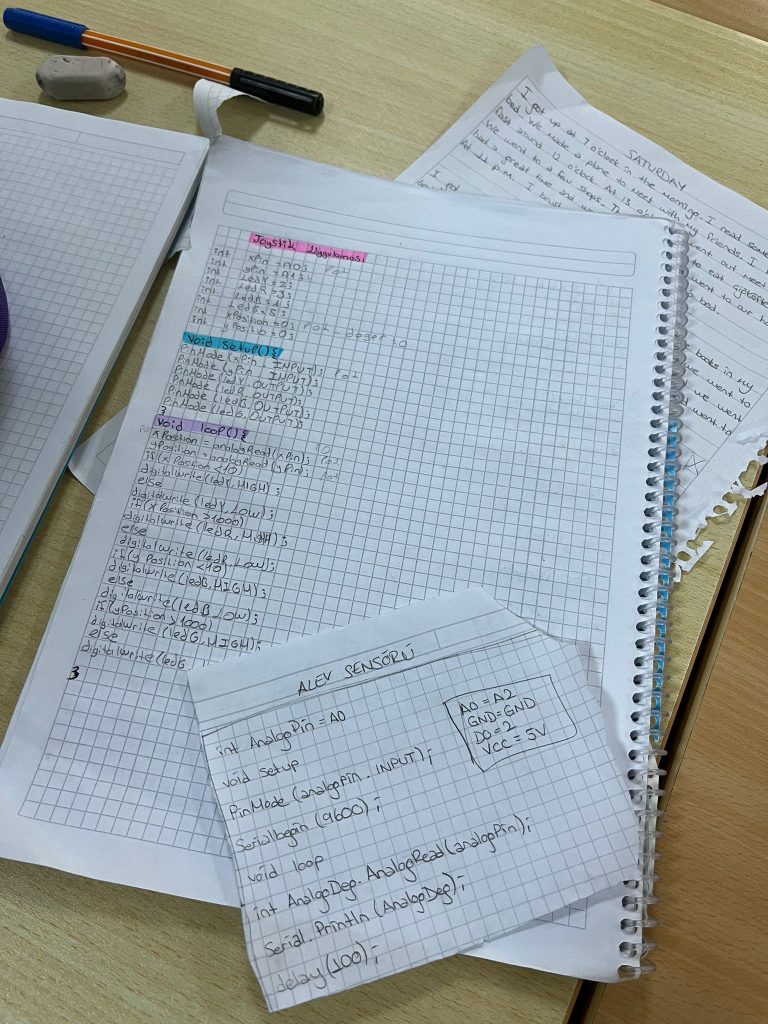 SATURDAY
I got up at 7 o'clock in the mornige. I read some
bed. We made a plane to meet with my friends. I
around 12 o'clock. At 13
We went to a few stops.
had a great time and
at 11 p.m. I brush
I got
went out meet
to eat
went to our ho
bed.
books in my
we went to
we went
went to
Joystik Uygulaması
int xPin = A0; Pot
int yPin = A1;
int ledY = 2;
int ledR = 3;
int ledB = 4;
int ledG = 5;
int xPosition = 0; Pot - deger = 0
int yPositio = 0;
Void Setup() {
PinMode (xPin, INPUT); Pot
PinMode (yPin, INPUT);
PinMode (ledY, OUTPUT);
PinMode (ledR, OUTPUT);
PinMode (ledB, OUTPUT);
PinMode (ledG, OUTPUT);
}
Void loop() {
xPosition = analogRead (xPin);
yPosition = analogRead (yPin);
if (x Position < 10)
digitalwrite (ledY, HIGH);
else
digitalwrite (ledY, LOW);
if (x Position > 1000)
digitalwrite (ledR, HIGH);
else
digitalwrite (ledR, LOW);
if (y Position < 10)
digitalwrite (ledB, HIGH);
else
digitalwrite (ledB, LOW);
if (yPosition > 1000)
digitalwrite (ledG, HIGH);
else
digitalwrite (ledG,
}
ALEV SENSÖRÜ
A0 = A2
GND = GND
D0 = 2
VCC = 5V
int AnalogPin = A0
void setup
PinMode (analogPin, INPUT);
Serialbegin (9600);
void loop
int AnalogDeg. AnalogRead (analogPin);
Serial. Println (AnalogDeg);
delay (100);